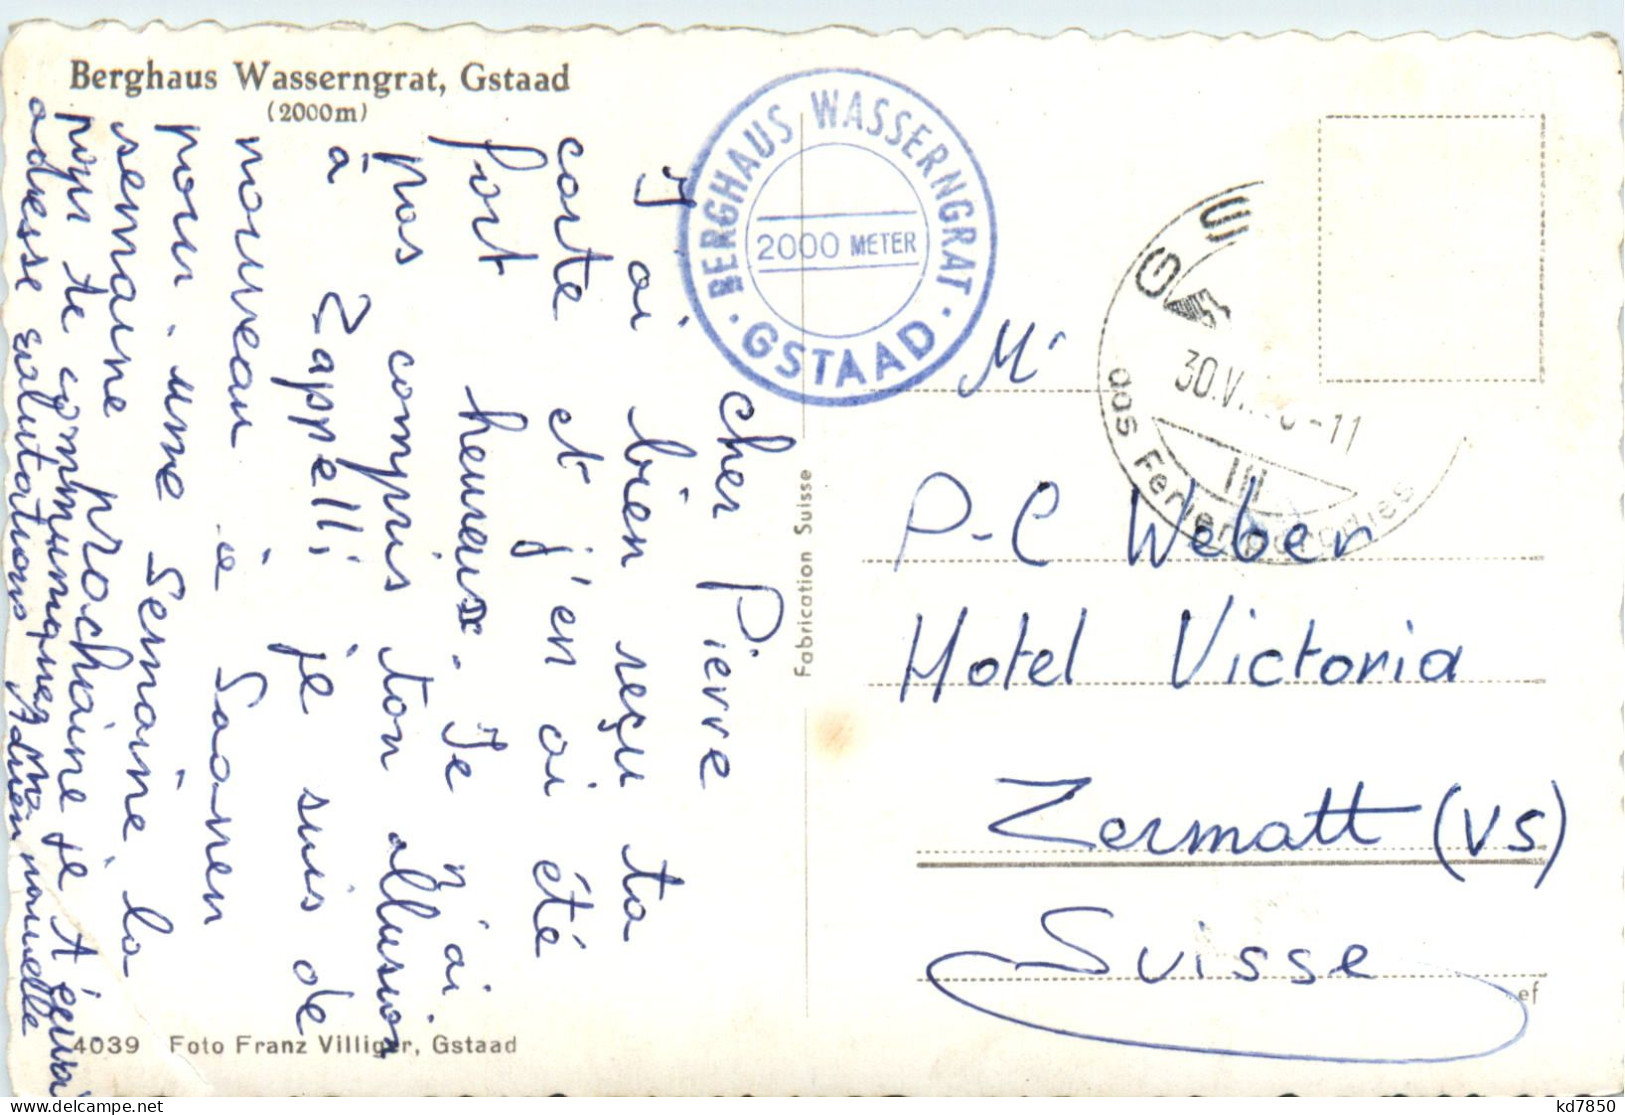 Berghaus Wasserngrat, Gstaad
(2000m)
BERGHAUS WASSERNGRAT
2000 METER
· GSTAAD ·
cher Pierre
J'ai bien reçu ta
carte et j'en ai été
fort heureux. Je n'ai
pas compris ton allusion
à Zappelli je suis de
nouveau à Saanen
pour une semaine la
semaine prochaine je t'écrirai
pour te communiquer ma nouvelle
adresse salutations Adrien
Fabrication Suisse
GS
30.V
-11
III
das Ferienparadies
Mr
P-C Weber
Hotel Victoria
Zermatt (VS)
Suisse
ef
4039 Foto Franz Villiger, Gstaad
kd7850